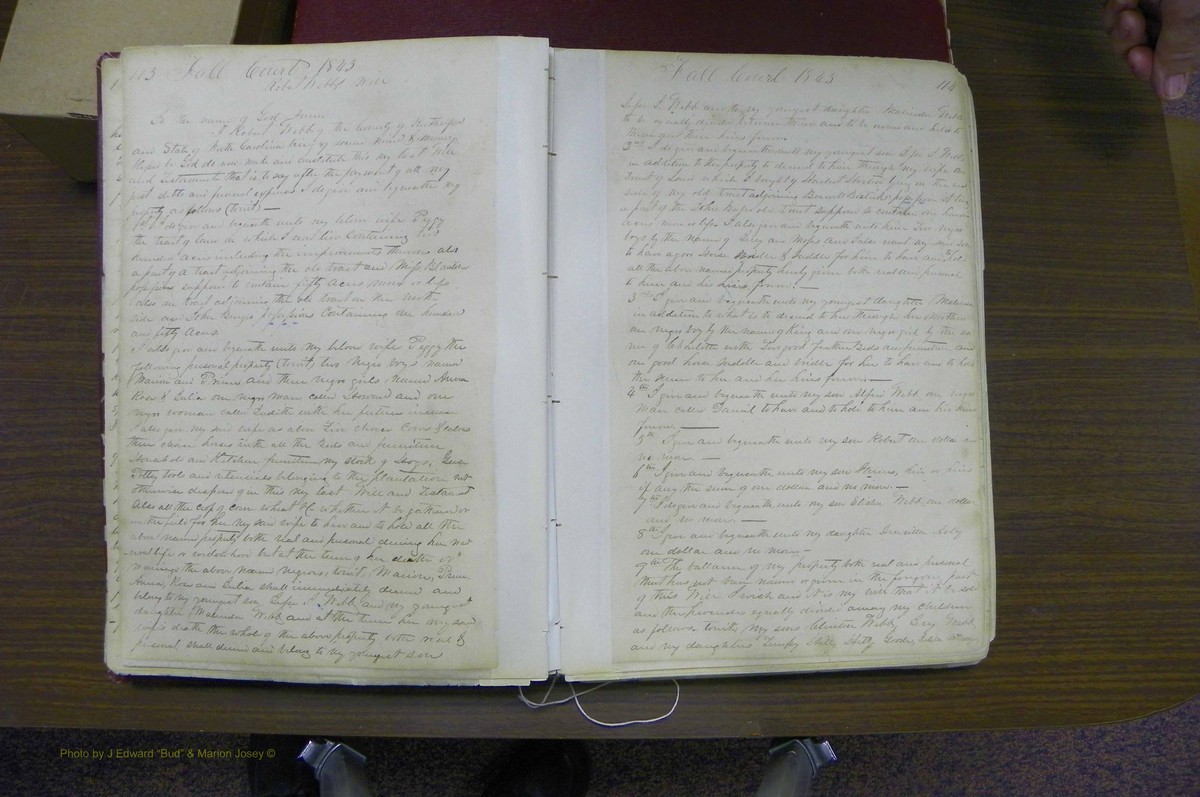 113 Fall Court 1843
Robt Webbs Will
In the name of God Amen
I Robert Webb of the County of Rutherford
and State of North Carolina being of sound mind & memory
thanks be to God do now make and constitute this my last Will
and Testament that is to say after the payment of all my
just debts and funeral expenses I dispose and bequeathe my
as follows (towit) —
1st I give and bequeath unto my below wife Peggy
the tract of land on which I now live containing two
hundred acres including the improvements thereon also
a part of a tract adjoining the old tract and
possession supposed to contain fifty acres more or less
also one tract adjoining the old tract on the north
side as John possession containing one hundred
and fifty acres
I also give and bequeath unto my below wife Peggy the
following personal property (towit) two negro boys named
Marion and Prince and three negro girls named Anna
Rose & Julia one negro man called Howard and one
negro woman called Judith with her future increase
I also give my said wife as above five choice Cows & calves
three choice horses with all the beds and furniture
Household and Kitchen furniture my stock of Hogs,
tools and utensils belonging to the plantation not
otherwise disposed of in this my last Will and Testament
Also all the crop of corn wheat &C whether it be gathered or
in the field for her my said wife to have and to hold all the
above named property both real and personal during her nat
ural life or widowhood but at the time of her death or
marriage the above named negroes, towit, Marion, Prince
Anna, Rose and Julia shall immediately descend and
belong to my youngest son S. Webb and my youngest
daughter Malinda Webb and at the time of her my said
wife's death the whole of the above property both real &
personal shall descend and belong to my youngest son
Fall Court 1843 114
S. Webb and to my youngest daughter Malinda Webb
to be equally divided between them and to be theirs and held to
them and their heirs forever
2nd I do give and bequeath unto my youngest son S. Webb
in addition to the property to descend to him through my wife one
tract of land which I bought of lying on the
side of my old tract adjoining possession it being
a part of the John tract supposed to contain one hundred
acres more or less I also give and bequeath unto him two negro
boys by the names of and Moses and I also want my said son
to have a good Horse Bridle & Saddle for him to have and hold
all the above named property hereby given both real and personal
to him and his heirs forever. —
3rd I give and bequeath unto my youngest daughter Malinda
in addition to what is to descend to her through her Mother
one negro boy by the name of King and one negro girl by the na
me of Charlotte with two good feather Beds and furniture and
one good horse saddle and bridle for her to have and to hold
the same to her and her heirs forever. —
4th I give and bequeath unto my son Alfred Webb one negro
man called Daniel to have and to hold to him and his heirs
forever —
5th I give and bequeath unto my son Robert one dollar and
no more. —
6th I give and bequeath unto my son heirs
if any the sum of one dollar and no more. —
7th I also give and bequeath unto my son Elisha Webb one dollar
and no more. —
8th I give and bequeath unto my daughter
one dollar and no more —
9th The ballance of my property both real and personal
that has not been named or given in the foregoing part
of this Will I wish and it is my will that it be sold
and the proceeds equally divided among my children
as follows towit, my sons Clinton Webb, Webb
and my daughters
Photo by J Edward "Bud" & Marion Josey ©